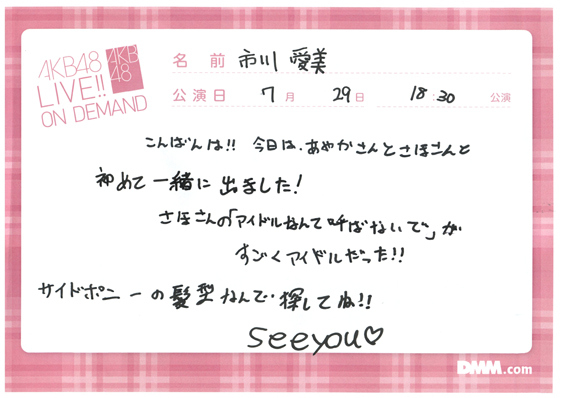 AKB48
LIVE!!
ON DEMAND
AKB
48
名前 市川 愛美
公演日 7月 29日 18:30 公演
こんばんは!! 今日は、あやかさんとさほさんと
初めて一緒に出ました!
さほさんの「アイドルなんて呼ばないで」が
すごくアイドルだった!!
サイドポニーの髪型なんで、探してね!!
seeyou♡
DMM.com